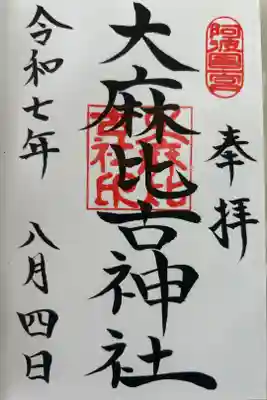 阿波國一宮
奉拝
大麻比古神社
大麻比
古神社印
令和七年 八月四日